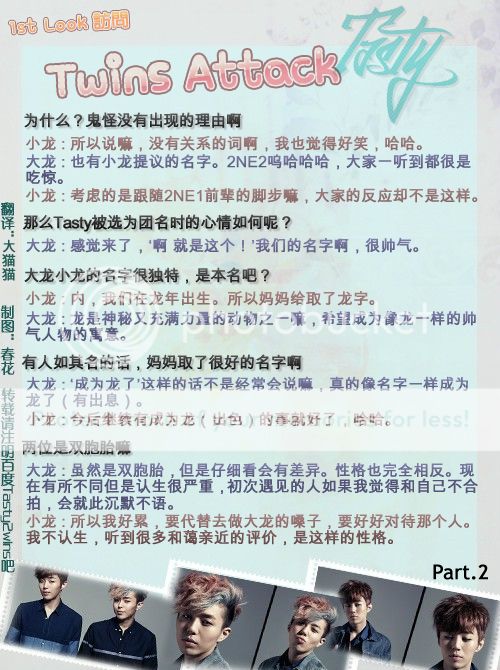 1st Look 訪問
Twins Attack
Tasty
为什么？鬼怪没有出现的理由啊
小龙：所以说嘛，没有关系的词啊，我也觉得好笑，哈哈。
大龙：也有小龙提议的名字。2NE2呜哈哈哈，大家一听到都很是
吃惊。
小龙：考虑的是跟随2NE1前辈的脚步嘛，大家的反应却不是这样。
那么Tasty被选为团名时的心情如何呢？
大龙：感觉来了，‘啊 就是这个！’我们的名字啊，很帅气。
大龙小龙的名字很独特，是本名吧？
小龙：内，我们在龙年出生。所以妈妈给取了龙字。
大龙：龙是神秘又充满力量的动物之一嘛，希望成为像龙一样的帅
气人物的寓意。
有人如其名的话，妈妈取了很好的名字啊
大龙：‘成为龙了’这样的话不是经常会说嘛，真的像名字一样成为
龙了（有出息）。
小龙：今后继续有成为龙（出色）的事就好了，哈哈。
两位是双胞胎嘛
大龙：虽然是双胞胎，但是仔细看会有差异。性格也完全相反。现
在有所不同但是认生很严重，初次遇见的人如果我觉得和自己不合
拍，会就此沉默不语。
小龙：所以我好累，要代替去做大龙的嗓子，要好好对待那个人。
我不认生，听到很多和蔼亲近的评价，是这样的性格。
翻译：大猫猫
制图：春花
转载请注明百度Tasty2wins吧
photobucket
for less!
Part.2